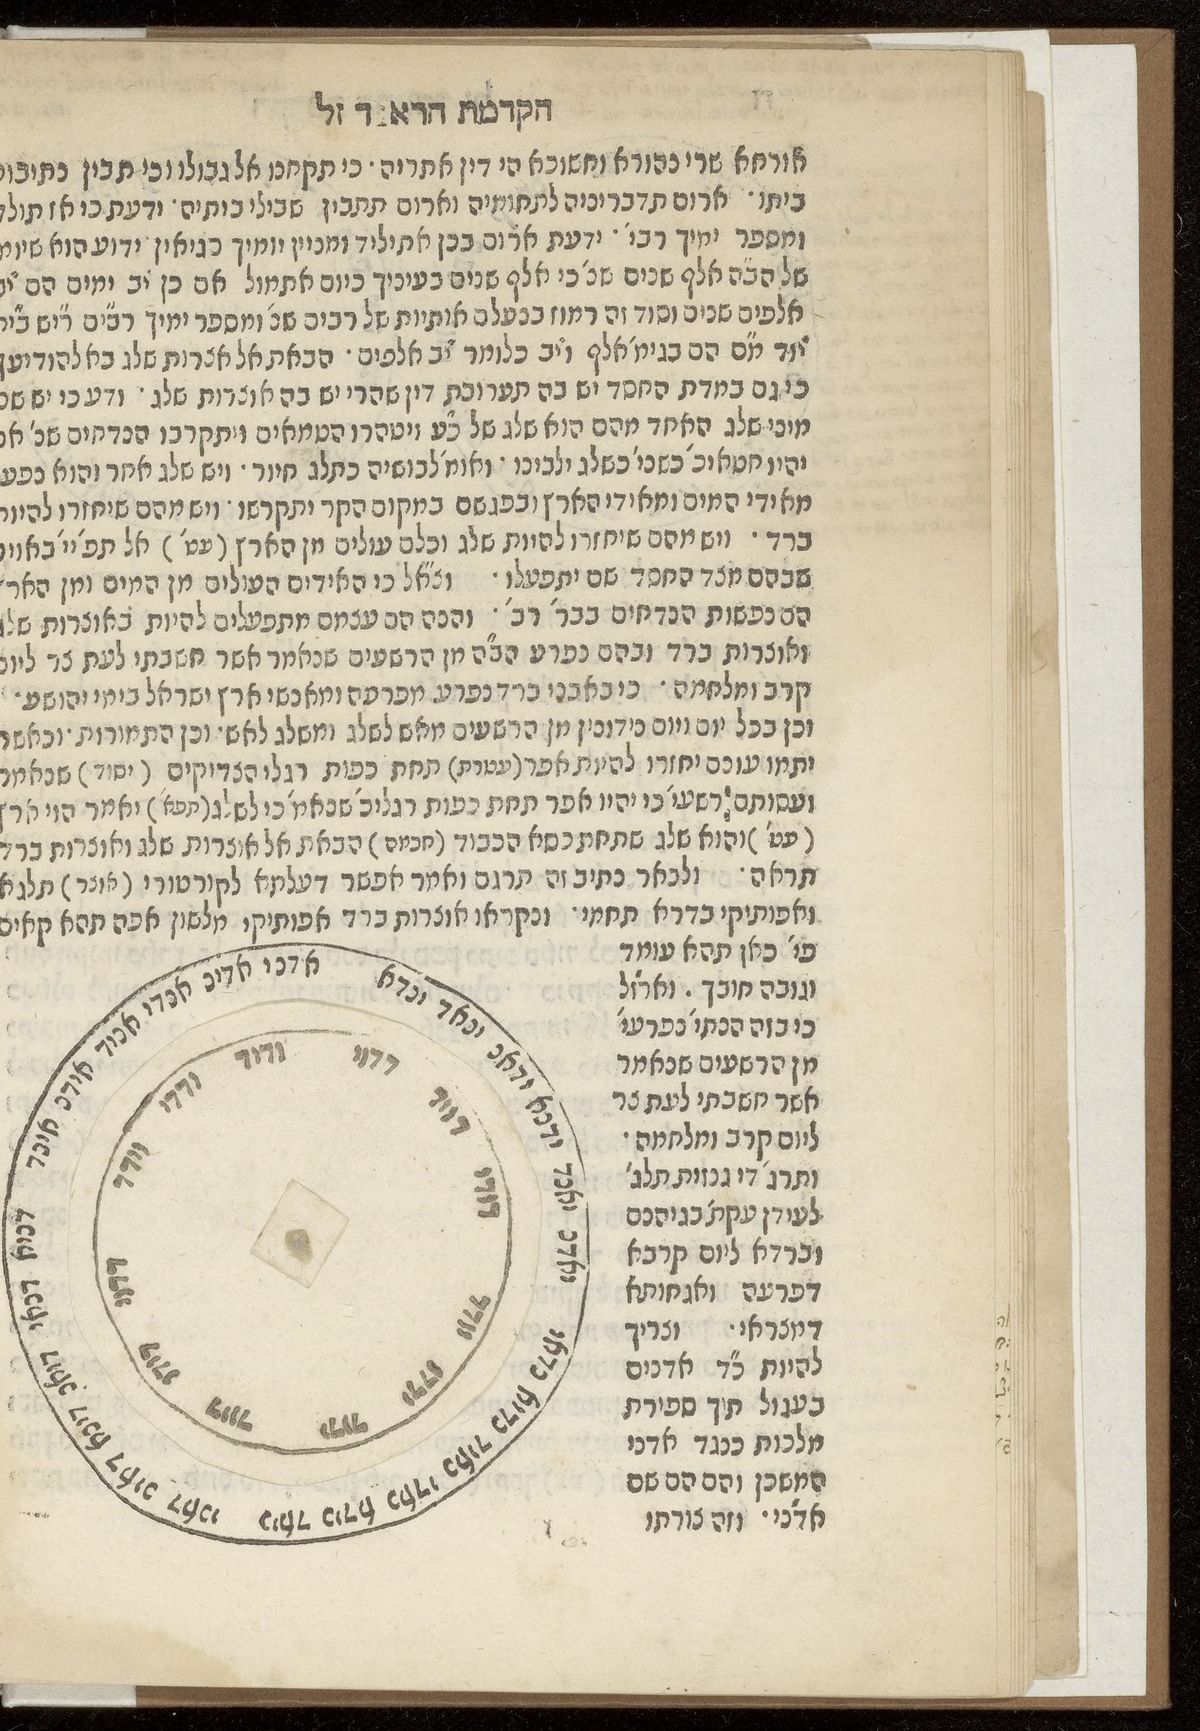 הקדמת הראב״ד זל
אורחא שרי נהורא וחשוכא הי דין אתריה · כי תקחנו אל גבולו וכי תבין נתיבות
ביתו · ארום תדברינה לתחומיה וארום תתבין שבילי ביתיה · ידעת כי אז תולד
ומספר ימיך רבי׳ · ידעת ארום בכן אתיליד ומניין יומיך סגיאין ידוע הוא שיומו
של הב״ה אלף שנים שנ׳ כי אלף שנים בעיניך כיום אתמול אם כן י״ב ימים הם י״ב
אלפים שנים וסוד זה רמוז בנעלם אותיות של רבים שנ׳ ומספר ימיך רבים ר״יש ב״ית
יו״ד מ״ם הם בגימ׳ אלף וי״ב כלומר י״ב אלפים · הבאת אל אצרות שלג בא להודיעך
כי גם במדת החסד יש בה תערובת דין שהרי יש בה אוצרות שלג · ודע כי יש שני
מיני שלג האחד מהם הוא שלג של נ״ע ויטהרו הטמאים ויתקרבו הנדחים שנ׳ אם
יהיו חטאיכ׳ כשני׳ כשלג ילבינו · ואומ׳ לבושיה כתלג חיור · ויש שלג אחר והוא נפעל
מאידי המים ומאידי הארץ ובפגשם במקום הקר יתקרשו · ויש מהם שיחזרו להיות
ברד · ויש מהם שיחזרו להיות שלג וכלם עולים מן הארץ (עט׳) אל תפ׳ יי׳ באויר
שבהם מצד החסד שם יתפעלו · וצ״אל כי האידים העולים מן המים ומן האר׳
הם נפשות הנדחים בבר׳ רב׳ · והנה הם עצמם מתפעלים להיות באוצרות שלג
ואוצרות ברד ובהם נפרע הב״ה מן הרשעים שנאמר אשר חשכתי לעת צר ליום
קרב ומלחמה · כי באבני ברד נפרע מפרעה ומאנשי ארץ ישראל בימי יהושע ·
וכן בכל יום ויום נידונין מן הרשעים מאש לשלג ומשלג לאש · וכן התמורות · וכאשר
יתמו עונם יחזרו להיות אפר (עטרת) תחת כפות רגלי הצדיקים (יסוד) שנאמר
ועסותם רשעי׳ כי יהיו אפר תחת כפות רגליכ׳ שנאמ׳ כי לשלג (תפא׳) יאמר הוי ארץ
(עט׳) והוא שלג שתחת כסא הכבוד (חכמה) הבאת אל אוצרות שלג ואוצרות ברד
תראה · ולבאר כתיב זה תרגם ואמר אפשר דעלתא לקורטורי (אוצר) תלגא
ואפותיקי בדרא תחמי · ונקראו אוצרות ברד אפותיקי מלשון אפה תהא קאים
פי׳ כאן תהא עומד
וגובה חובך . ואר״זל
כי בזה הכתי׳ נפרעי׳
מן הרשעים שנאמר
אשר חשכתי לעת צר
ליום קרב ומלחמה ·
ותרג׳ די גנזית תלג׳
לעידן עקת׳ בגיהנם
וברדא ליום קרבא
דפרעה ואגחותא
דמצראי · וצריך
להיות כ״ד אדנים
בעגול תוך ספירת
מלכות כנגד אדני
המשכן והם הם שם
אדני · וזה צורתו
אדני אדינ אנדי אניד אידנ אינד
דניא דנאי דיאנ דינא דאינ דאני
נידא נאדי נאיד נדיא נדאי
יאדנ יאנד ידנא ידאנ ינאד ינדא
ודוד ודדו וודד
דדוי דויד דודו